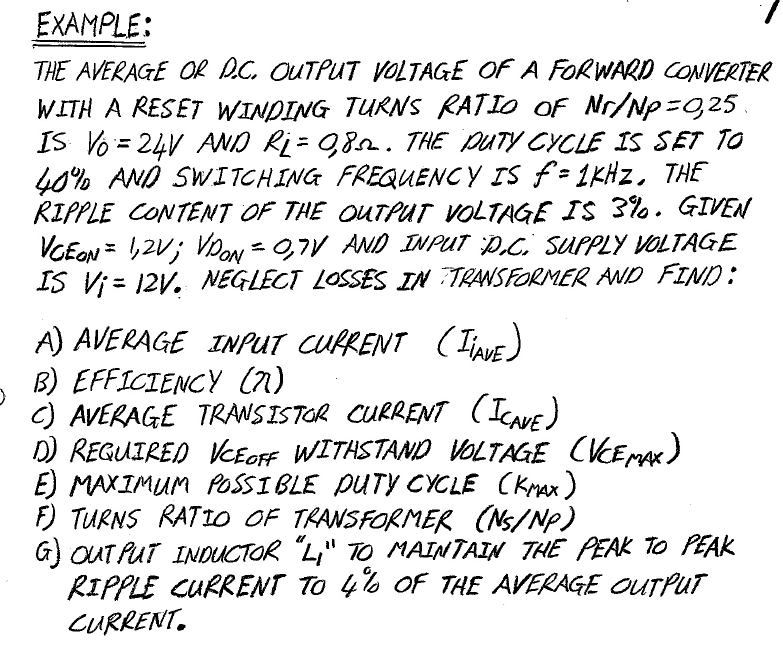 EXAMPLE:
THE AVERAGE OR D.C. OUTPUT VOLTAGE OF A FORWARD CONVERTER
WITH A RESET WINDING TURNS RATIO OF Nr/Np=0,25.
IS Vo = 24V AND RL = 0,8Ω. THE DUTY CYCLE IS SET TO
40% AND SWITCHING FREQUENCY IS f = 1KHZ. THE
RIPPLE CONTENT OF THE OUTPUT VOLTAGE IS 3%. GIVEN
VCEON = 1,2V; VDON = 0,7V AND INPUT D.C. SUPPLY VOLTAGE
IS Vi = 12V. NEGLECT LOSSES IN TRANSFORMER AND FIND:
A) AVERAGE INPUT CURRENT (IiAVE)
B) EFFICIENCY (η)
C) AVERAGE TRANSISTOR CURRENT (ICAVE)
D) REQUIRED VCEOFF WITHSTAND VOLTAGE (VCEMAX)
E) MAXIMUM POSSIBLE DUTY CYCLE (KMAX)
F) TURNS RATIO OF TRANSFORMER (Ns/Np)
G) OUTPUT INDUCTOR "L1" TO MAINTAIN THE PEAK TO PEAK
RIPPLE CURRENT TO 4% OF THE AVERAGE OUTPUT
CURRENT.